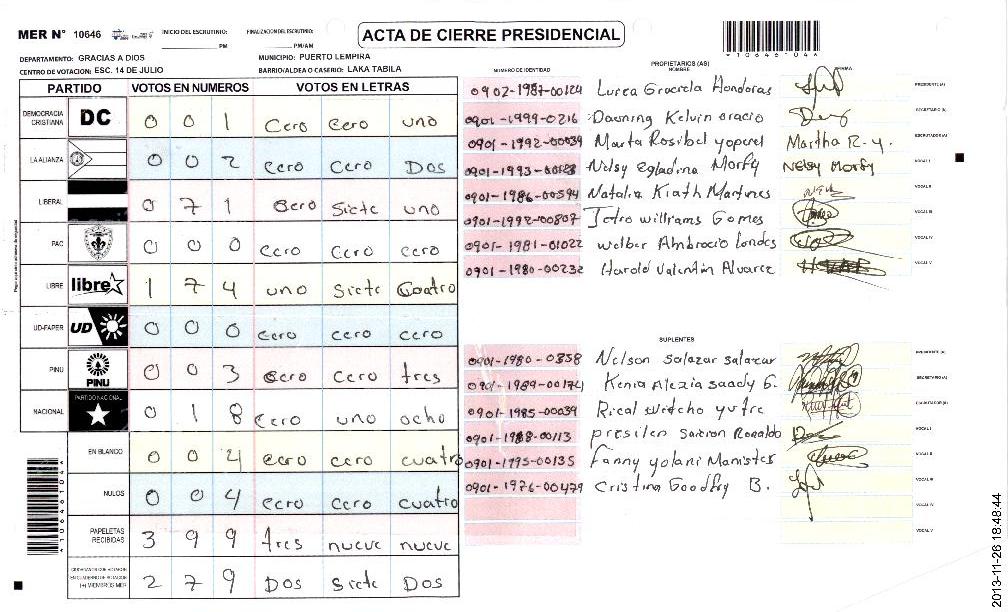 MER N° 10646
INICIO DEL ESCRUTINIO:
PM
FINALIZACION DEL ESCRUTINIO:
PM/AM
ACTA DE CIERRE PRESIDENCIAL
*10646104*
DEPARTAMENTO: GRACIAS A DIOS
MUNICIPIO: PUERTO LEMPIRA
CENTRO DE VOTACION: ESC. 14 DE JULIO
BARRIO/ALDEA O CASERIO: LAKA TABILA
PARTIDO VOTOS EN NUMEROS VOTOS EN LETRAS
DEMOCRACIA CRISTIANA DC 0 0 1 Cero cero uno
LA ALIANZA 0 0 2 cero cero Dos
LIBERAL 0 7 1 cero siete uno
PAC 0 0 0 cero cero cero
LIBRE libre 1 7 4 uno siete cuatro
UD-FAPER UD 0 0 0 cero cero cero
PINU PINU 0 0 3 cero cero tres
NACIONAL PARTIDO NACIONAL 0 1 8 cero uno ocho
EN BLANCO 0 0 4 cero cero cuatro
NULOS 0 0 4 cero cero cuatro
PAPELETAS RECIBIDAS 3 9 9 tres nueve nueve
2 7 9 Dos siete Dos
NUMERO DE IDENTIDAD
PROPIETARIOS (AS)
NOMBRE
FIRMA
0902-1987-00124 Graciela Honduras PRESIDENTE (A)
0901-1999-0216 Dawning Kelvin oracio SECRETARIO (A)
0901-1992-00039 Marta Rosibel Martha R-y. ESCRUTADOR (A)
0901-1993- Nelsy Morfy Nelsy Morfy VOCAL I
0901-1986-00594 Natalia Kiath Martines VOCAL II
0901-1992-00807 Jetro williams Gomes VOCAL III
0901-1981-01022 welber Ambrocio VOCAL IV
0901-1980-00232 Harold Valentin Alvarez VOCAL V
SUPLENTES
0901-1980-0358 Nelson salazar salazar PRESIDENTE (A)
0901-1989-00174 Kenia Alexia saady G. SECRETARIO (A)
0901-1985-00039 Rical ESCRUTADOR (A)
0901-1988-00113 Ronaldo VOCAL I
0901-1995-00135 Fanny yolani VOCAL II
0901-1976-00479 Cristina Goodfry B. VOCAL III
VOCAL IV
VOCAL V
*10646104*
2013-11-26 18:48:44